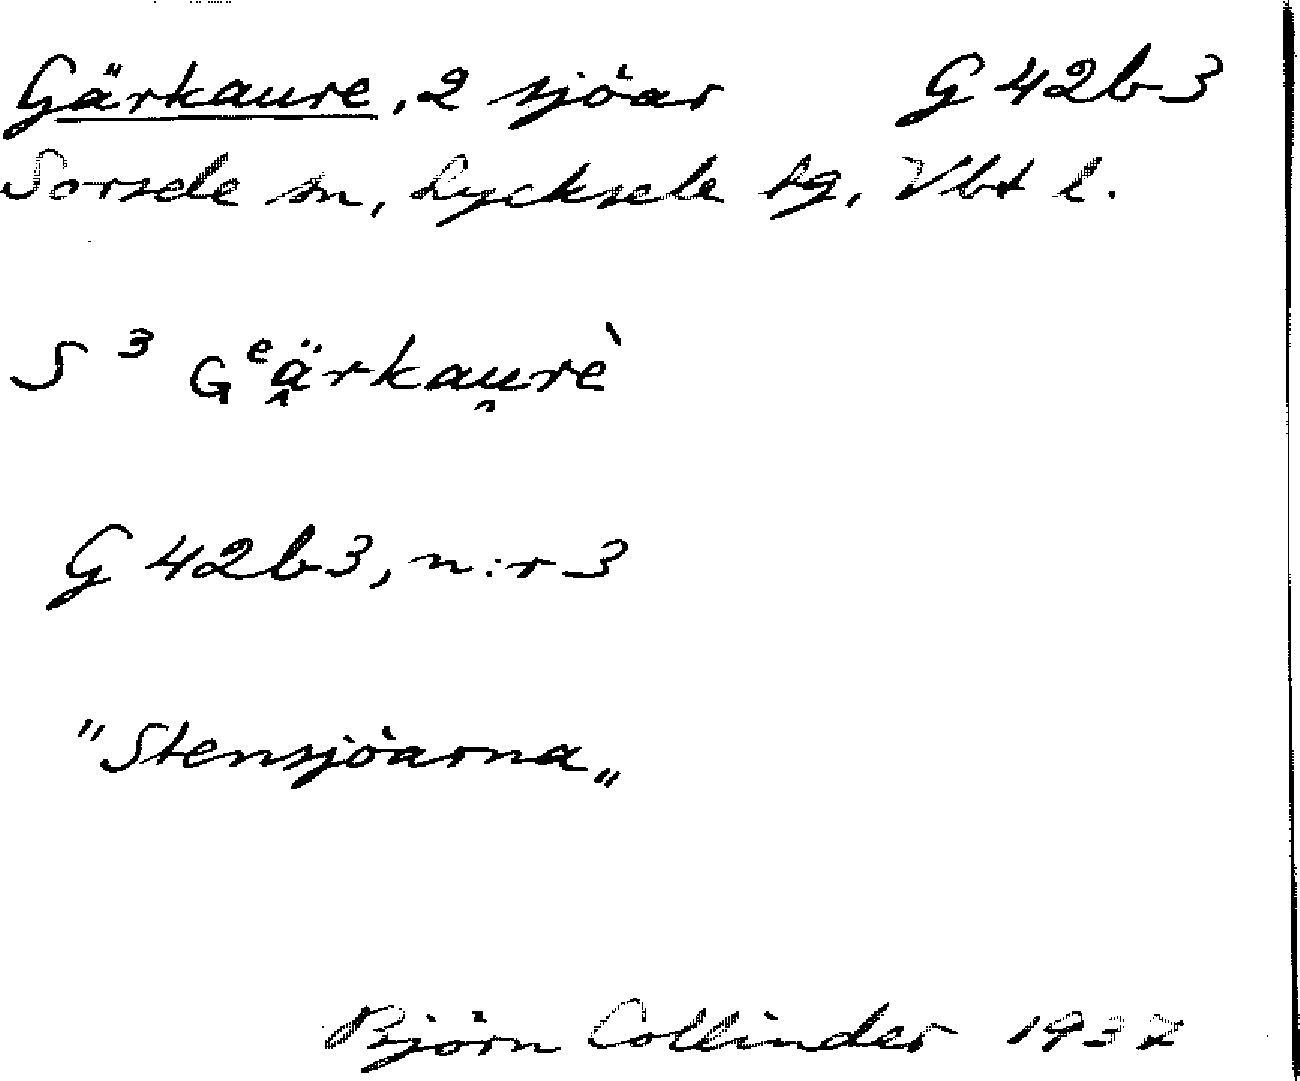 Gärkaure, 2 sjöar G 42b3
Sorsele sn, Lycksele tg, Vbt l.
S 3 Gᵉä̭rkau̯rè
G 42b3, n:r 3
"Stensjöarna„
Björn Collinder 1937